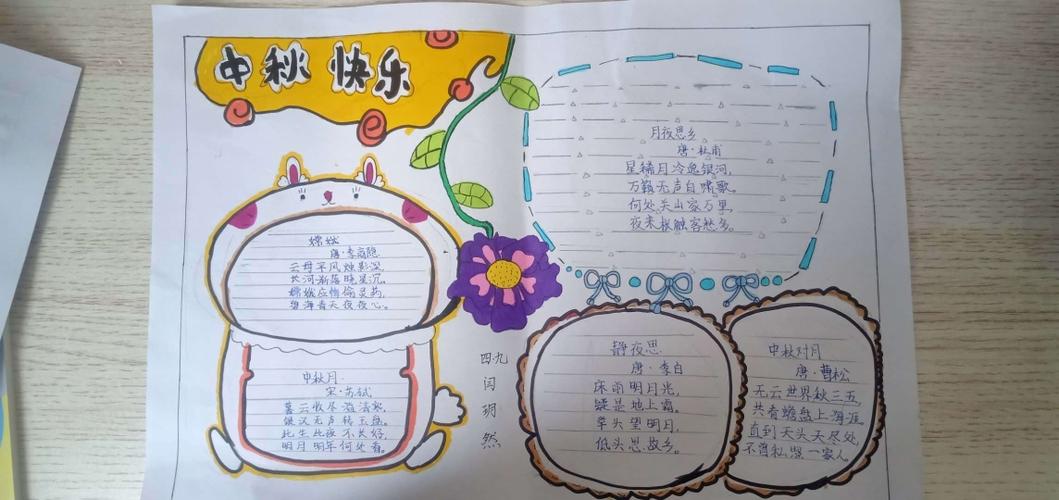 中秋 快乐
嫦娥
唐·李商隐
云母平风烛影深,
长河渐落晓星沉,
嫦娥应悔偷灵药,
碧海青天夜夜心。
中秋月
宋·苏轼
暮云收尽溢清寒,
银汉无声转玉盘。
此生此夜不长好,
明月明年何处看。
四九
闫
玥
然
月夜思乡
唐·杜甫
星稀月冷逸银河,
万籁无声自啸歌。
何处关山家万里,
夜来枨触客愁
静夜思
唐·李白
床前明月光,
疑是地上霜。
举头望明月,
低头思故乡。
中秋对月
唐·曹松
无云世界秋三五,
共看蟾盘上海涯。
直到天头天尽处,
不曾私照一家人。